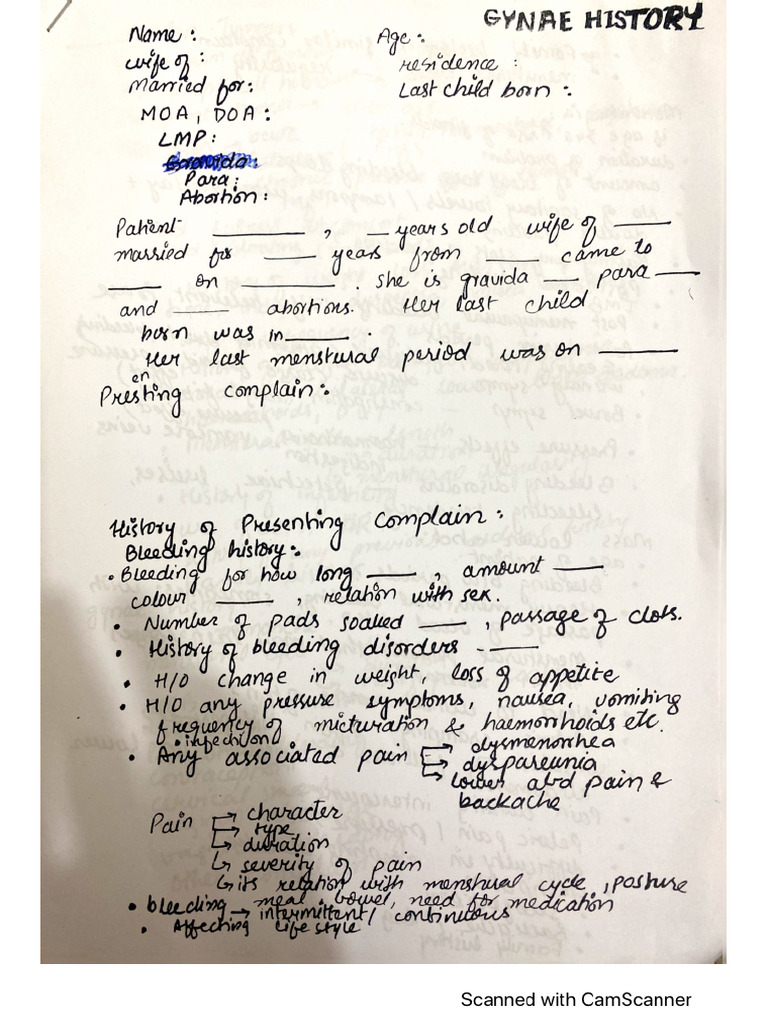 GYNAE HISTORY
Name : Age :
wife of : residence :
Married for: Last child born :
MOA, DOA :
LMP :
Gravida:
Para :
Abortion :
Patient ______ , __ years old wife of ____
married for ____ years from ____ came to
____ on ______ . She is gravida __ para __
and ____ abortions. Her last child
born was in ____ .
Her last menstural period was on ____
en
Presting complain :
History of Presenting Complain :
Bleeding history :
• Bleeding for how long ___ , amount ___
colour ___ , relation with sex.
• Number of pads soaked ___ , passage of clots.
• History of bleeding disorders - ___
• H/O change in weight, loss of appetite
• H/O any pressure symptoms, nausea, vomiting
frequency of micturation & haemorrhoids etc.
• infection
• Any associated pain → dysmenorrhea
→ dyspareunia
→ lower abd pain &
backache
Pain → character
→ type
→ duration
→ severity of pain
→ its relation with menstrual cycle, posture
meal, bowel, need for medication
• bleeding → intermittent / continuous
• Affecting life style
Scanned with CamScanner